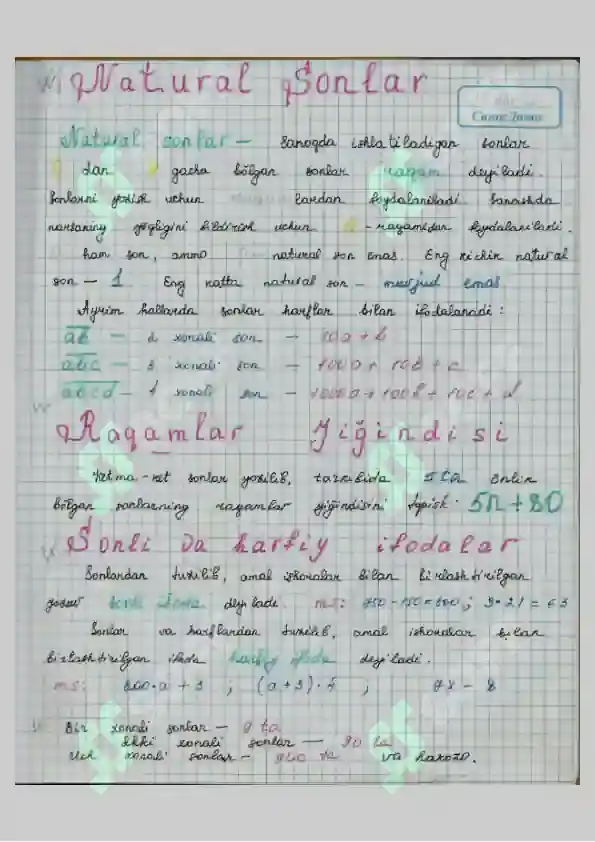 Natural Sonlar
Natural sonlar – Sanoqda ishlatiladigan sonlar
dan gacha bõlgan sonlar raqam deyiladi.
Sonlarni yozish uchun lardan foydalaniladi. Sanashda
narsaning yõqligini bildirish uchun -raqamidan foydalaniladi.
ham son, ammo natural son emas. Eng kichik natural
son – 1 Eng katta natural son – mavjud emas
Ayrim hollarda sonlar harflar bilan ifodalanadi:
ab – 2 xonali son – 10a + b
abc – 3 xonali son – 100a + 10b + c
abcd – 4 xonali son – 1000a + 100b + 10c + d
Raqamlar Yiğindisi
Ketma-ket sonlar yozilib, tarkibida 5ta
bõlgan sonlarning raqamlar yiğindisini topish. 5n+80
Sonli va harfiy ifodalar
Sonlardan tuzilib, amal ishoralar bilan birlashtirilgan
sonli ifoda deyiladi. ms: 9·21 = 63
Sonlar va harflardan tuzilib, amal ishoralar bilan
birlashtirilgan ifoda harfiy ifoda deyiladi.
ms: 200·a + 3 ; (a+3)·5 ; 7x – 8
Bir xonali sonlar – 9 ta
Ikki xonali sonlar – 90 ta
Uch xonali sonlar – 900 ta va hakozo.